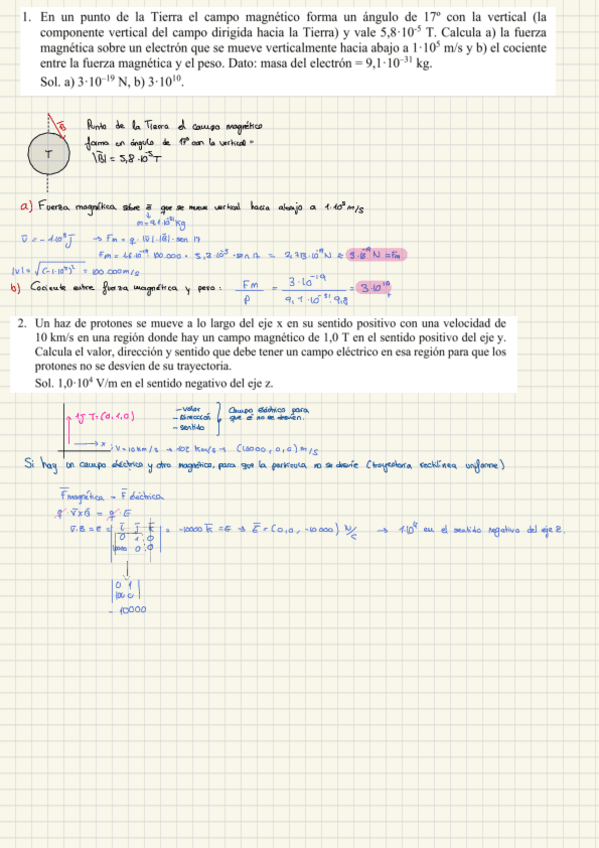 1. En un punto de la Tierra el campo magnético forma un ángulo de 17º con la vertical (la
componente vertical del campo dirigida hacia la Tierra) y vale 5,8·10⁻⁵ T. Calcula a) la fuerza
magnética sobre un electrón que se mueve verticalmente hacia abajo a 1·10⁵ m/s y b) el cociente
entre la fuerza magnética y el peso. Dato: masa del electrón = 9,1·10⁻³¹ kg.
Sol. a) 3·10⁻¹⁹ N, b) 3·10¹⁰.
Punto de la Tierra el campo magnético
forma un ángulo de 17º con la vertical =
T
|B| = 5,8·10⁻⁵T
a) Fuerza magnética sobre e que se mueve vertical hacia abajo a 1·10⁵ m/s
m = 9,1·10⁻³¹ kg
→ Fm = q · |v| · |B| · sen 17
= 100.000 m/s
b) Cociente entre fuerza magnética y peso: Fm / P = 3·10⁻¹⁹ / 9,1·10⁻³¹·9,8 = 3·10¹⁰
2. Un haz de protones se mueve a lo largo del eje x en su sentido positivo con una velocidad de
10 km/s en una región donde hay un campo magnético de 1,0 T en el sentido positivo del eje y.
Calcula el valor, dirección y sentido que debe tener un campo eléctrico en esa región para que los
protones no se desvíen de su trayectoria.
Sol. 1,0·10⁴ V/m en el sentido negativo del eje z.
1J T=(0,1,0)
- valor
- Dirección
- sentido
Campo eléctrico para
que no se desvíen.
(10000, 0, 0) m/s
Si hay un campo eléctrico y otro magnético, para que la partícula no se desvíe (trayectoria rectilínea uniforme)
F magnética = F eléctrica
q · v x B = q · E
= -10000 k = E → E = (0,0, -10000) N/C → 1·10⁴ en el sentido negativo del eje z.
- 10000